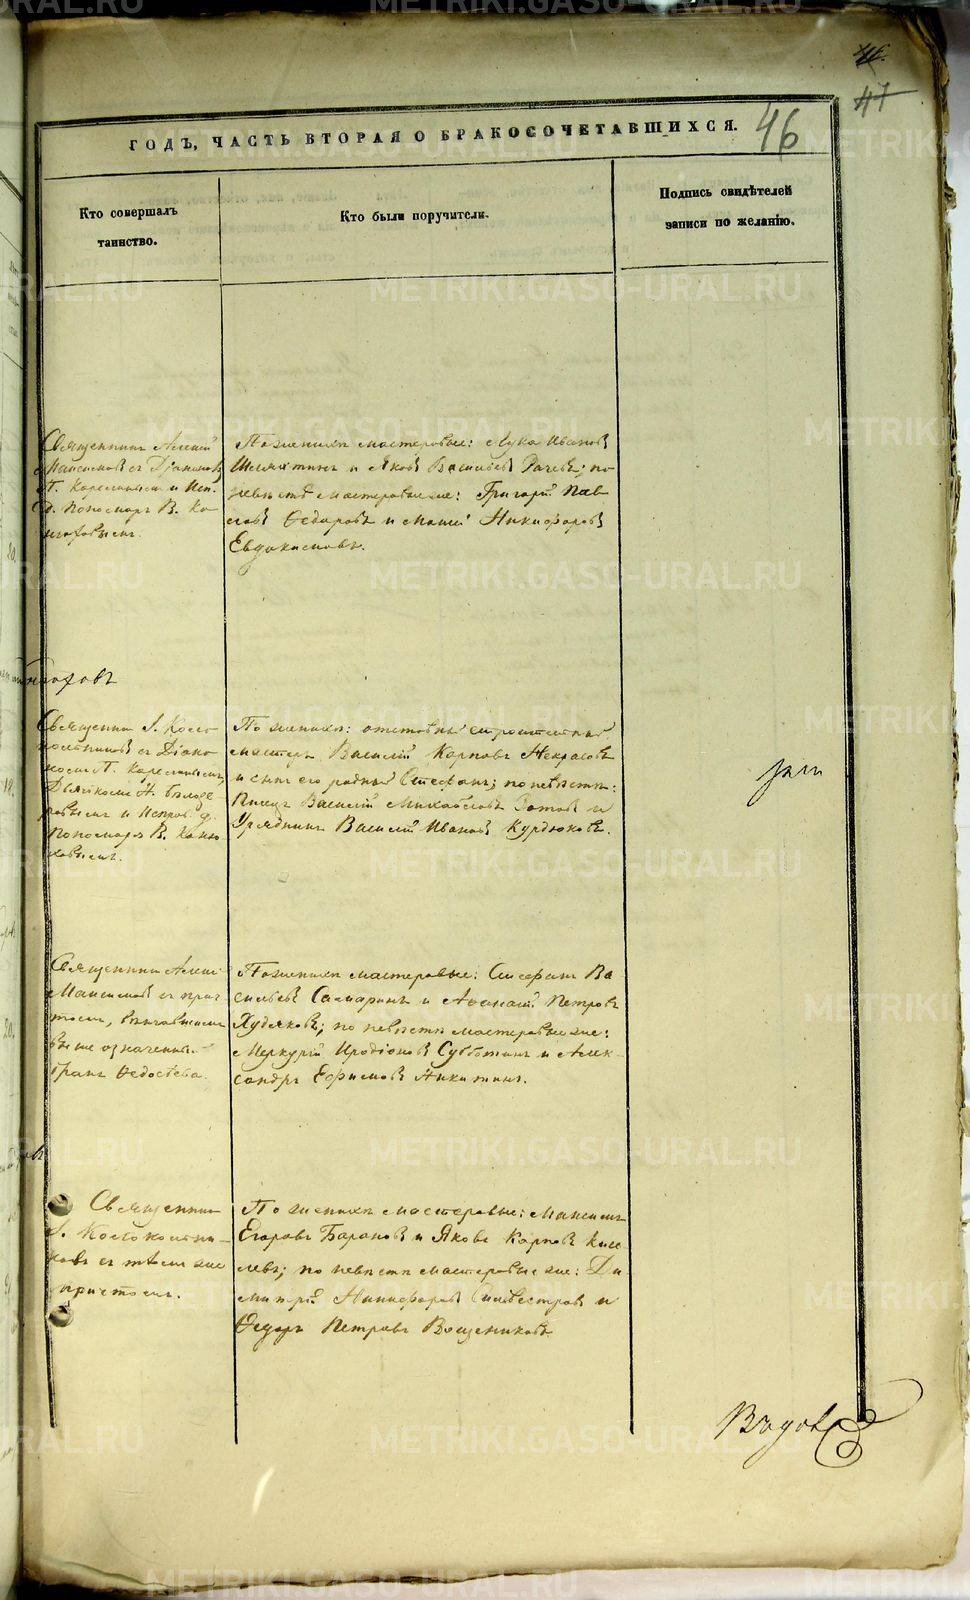 46
47
46
ГОДЪ, ЧАСТЬ ВТОРАЯ О БРАКОСОЧЕТАВШИХСЯ.
Кто совершалъ
таинство.
Кто были поручители.
Подпись свидѣтелей
записи по желанію.
Священникъ Алексій
Максимовъ съ Діакономъ
П. Карелинымъ и Исп.
д. Пономаря В. Ко-
По женихѣ мастеровые: Лука Ивановъ
и Яковъ Васильевъ по
невѣстѣ мастеровые же: Григорій Пав
ловъ Ѳедоровъ и Никифоровъ
Евдокимовъ.
Священникъ І. Коло
кольниковъ съ Діако
номъ П. Карелинымъ,
Дьячкомъ Н.
и Исправ. д.
Пономаря В. Коню
ховымъ.
По женихѣ: отставный строительный
мастеръ Василій Карповъ Некрасовъ
и сынъ его родный Стефанъ; по невѣстѣ:
Писецъ Василій Михайловъ Зотовъ и
Урядникъ Василій Ивановъ Курдюковъ.
Священникъ Алексій
Максимовъ съ прич
томъ,
выше означеннымъ
Ѳедосѣева.
По женихѣ мастеровые: Стефанъ Ва
сильевъ Самаринъ и Аѳанасій Петровъ
Худяковъ; по невѣстѣ мастеровые же:
Меркурій Иродіоновъ Субботинъ и Алек-
сандръ Ефимовъ Никитинъ.
Священникъ
І. Колокольни-
ковъ съ тѣмъ же
причтомъ.
По женихѣ мастеровые: Максимъ
Егоровъ Барановъ и Яковъ Карповъ Кисе
левъ; по невѣстѣ мастеровые же: Ди
митрій Никифоровъ Сильвестровъ и
Ѳедоръ Петровъ Вощениковъ.
METRIKI.GASO-URAL.RU